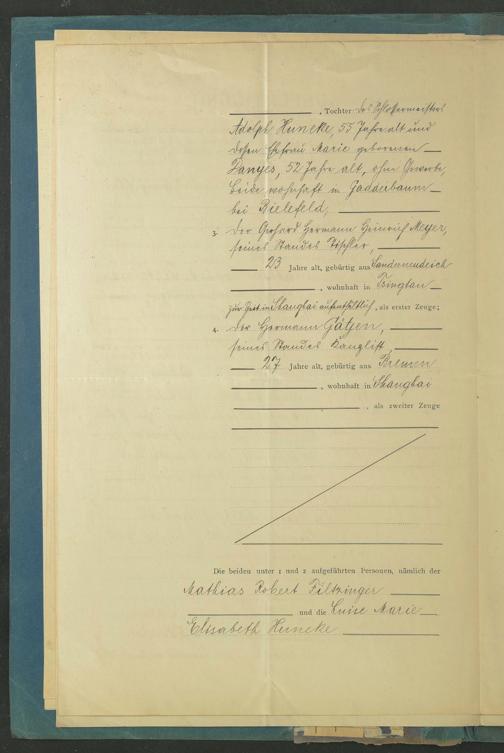 , Tochter des Schlossermeisters
Adolph Huneke, 55 Jahre alt und
dessen Ehefrau Marie geborenen
Danyes, 52 Jahre alt, ohne Gewerbe,
beide wohnhaft in Gadderbaum
bei Bielefeld,
3. der Gerhard Hermann Heinrich Meyer,
seines Standes Tischler,
23 Jahre alt, gebürtig aus
, wohnhaft in Tsingtau
zur Zeit in Shanghai aufenthaltlich, als erster Zeuge;
4. der Hermann Götjen,
seines Standes Kanzlist,
27 Jahre alt, gebürtig aus Bremen
, wohnhaft in Shanghai
, als zweiter Zeuge
Die beiden unter 1 und 2 aufgeführten Personen, nämlich der
Mathias Robert Filtzinger
und die Luise Marie
Elisabeth Huneke